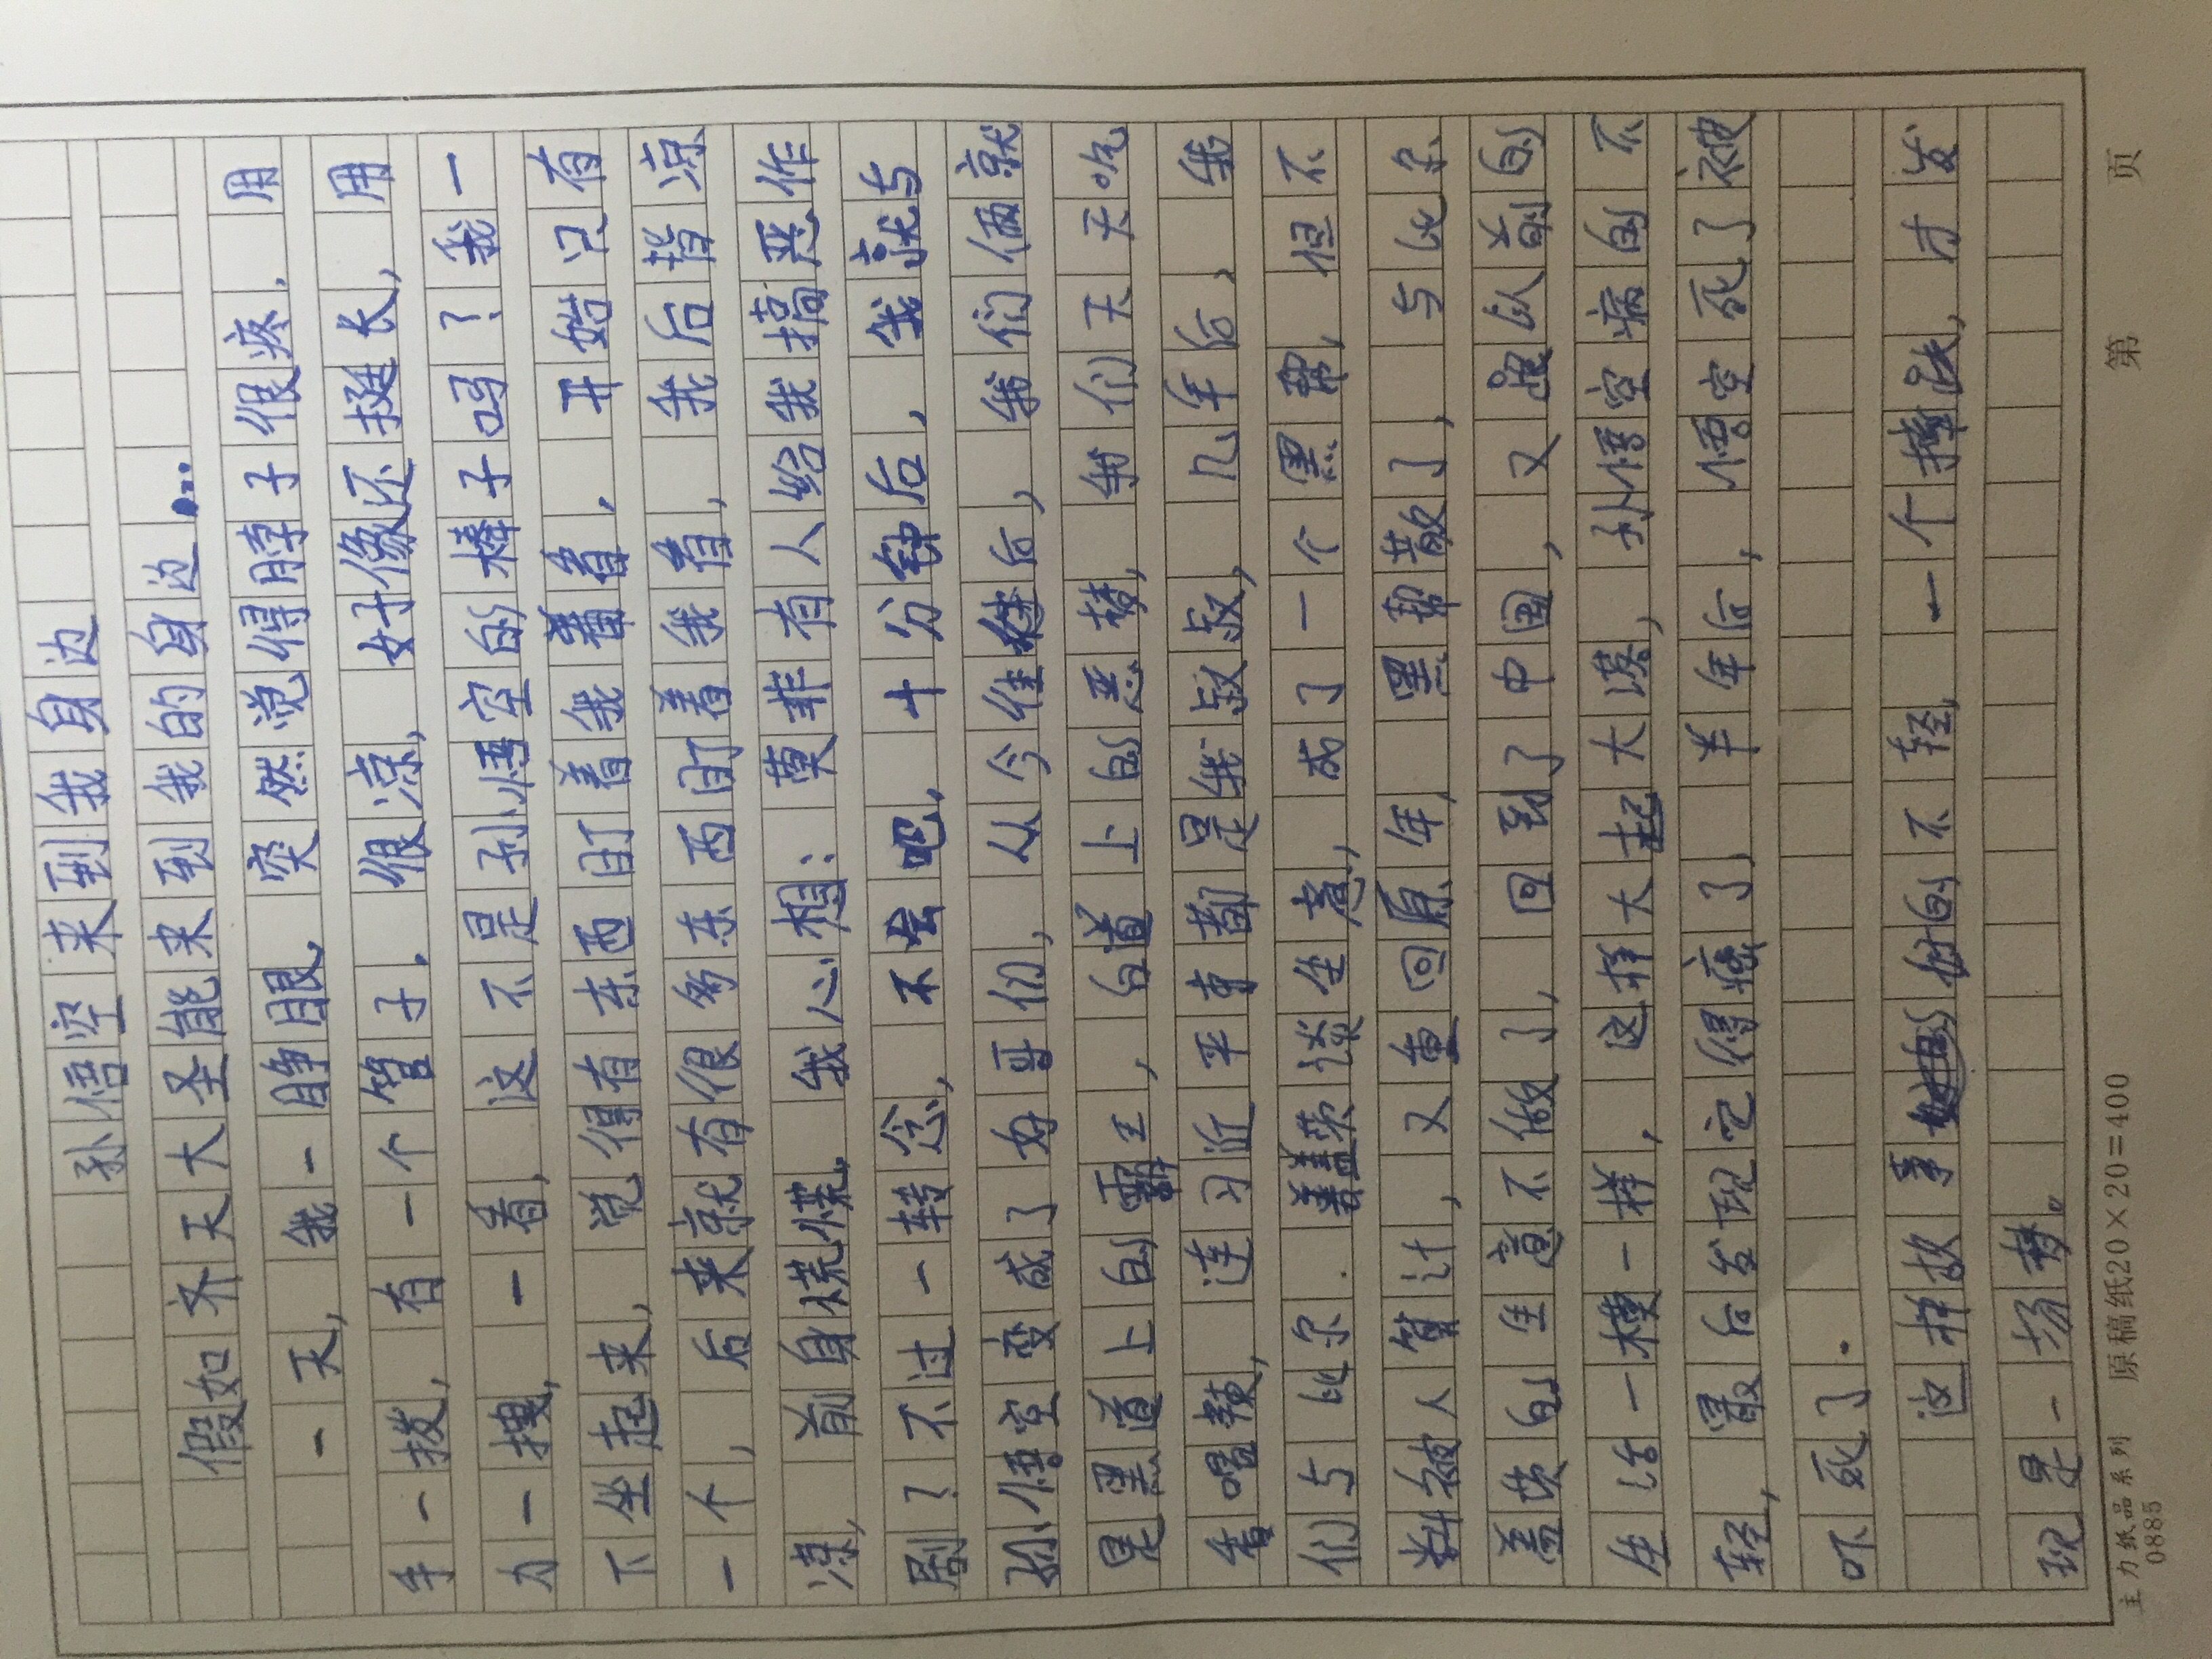 孙悟空来到我身边
假如齐天大圣能来到我的身边…
一天，我一睁眼，突然觉得脖子很疼，用
手一拨，有一个管子，很凉，好像还挺长，用
力一拽，一看，这不是孙悟空的棒子吗？我一
下坐起来，觉得有东西盯着我看着，开始只有
一个，后来就有很多东西盯着我看，我后背凉
凉，前身慌慌，我心想：莫非有人给我搞恶作
剧？不过一转念，不会吧，十分钟后，我就与
孙悟空变成了好哥们，从今往后，我们俩就
是黑道上的霸王，白道上的恶棍，我们天天吃
香喝辣，连习近平事都是我叔叔，几年后，我
们与比尔·盖茨谈生意，成了一个黑帮，但不
料被人算计，又重回原年，黑帮散了，与比尔
盖茨的生意不做了，回到了中国，又跟以前的
生活一模一样，这样大起大落，孙悟空病的不
轻，最后发现它得癌了，半年后，悟空死了被
吓死了。
这样故事份的不轻，一个摔跌，才发
现是一场梦。
第 页
主力纸品系列 原稿纸20×20=400
0885